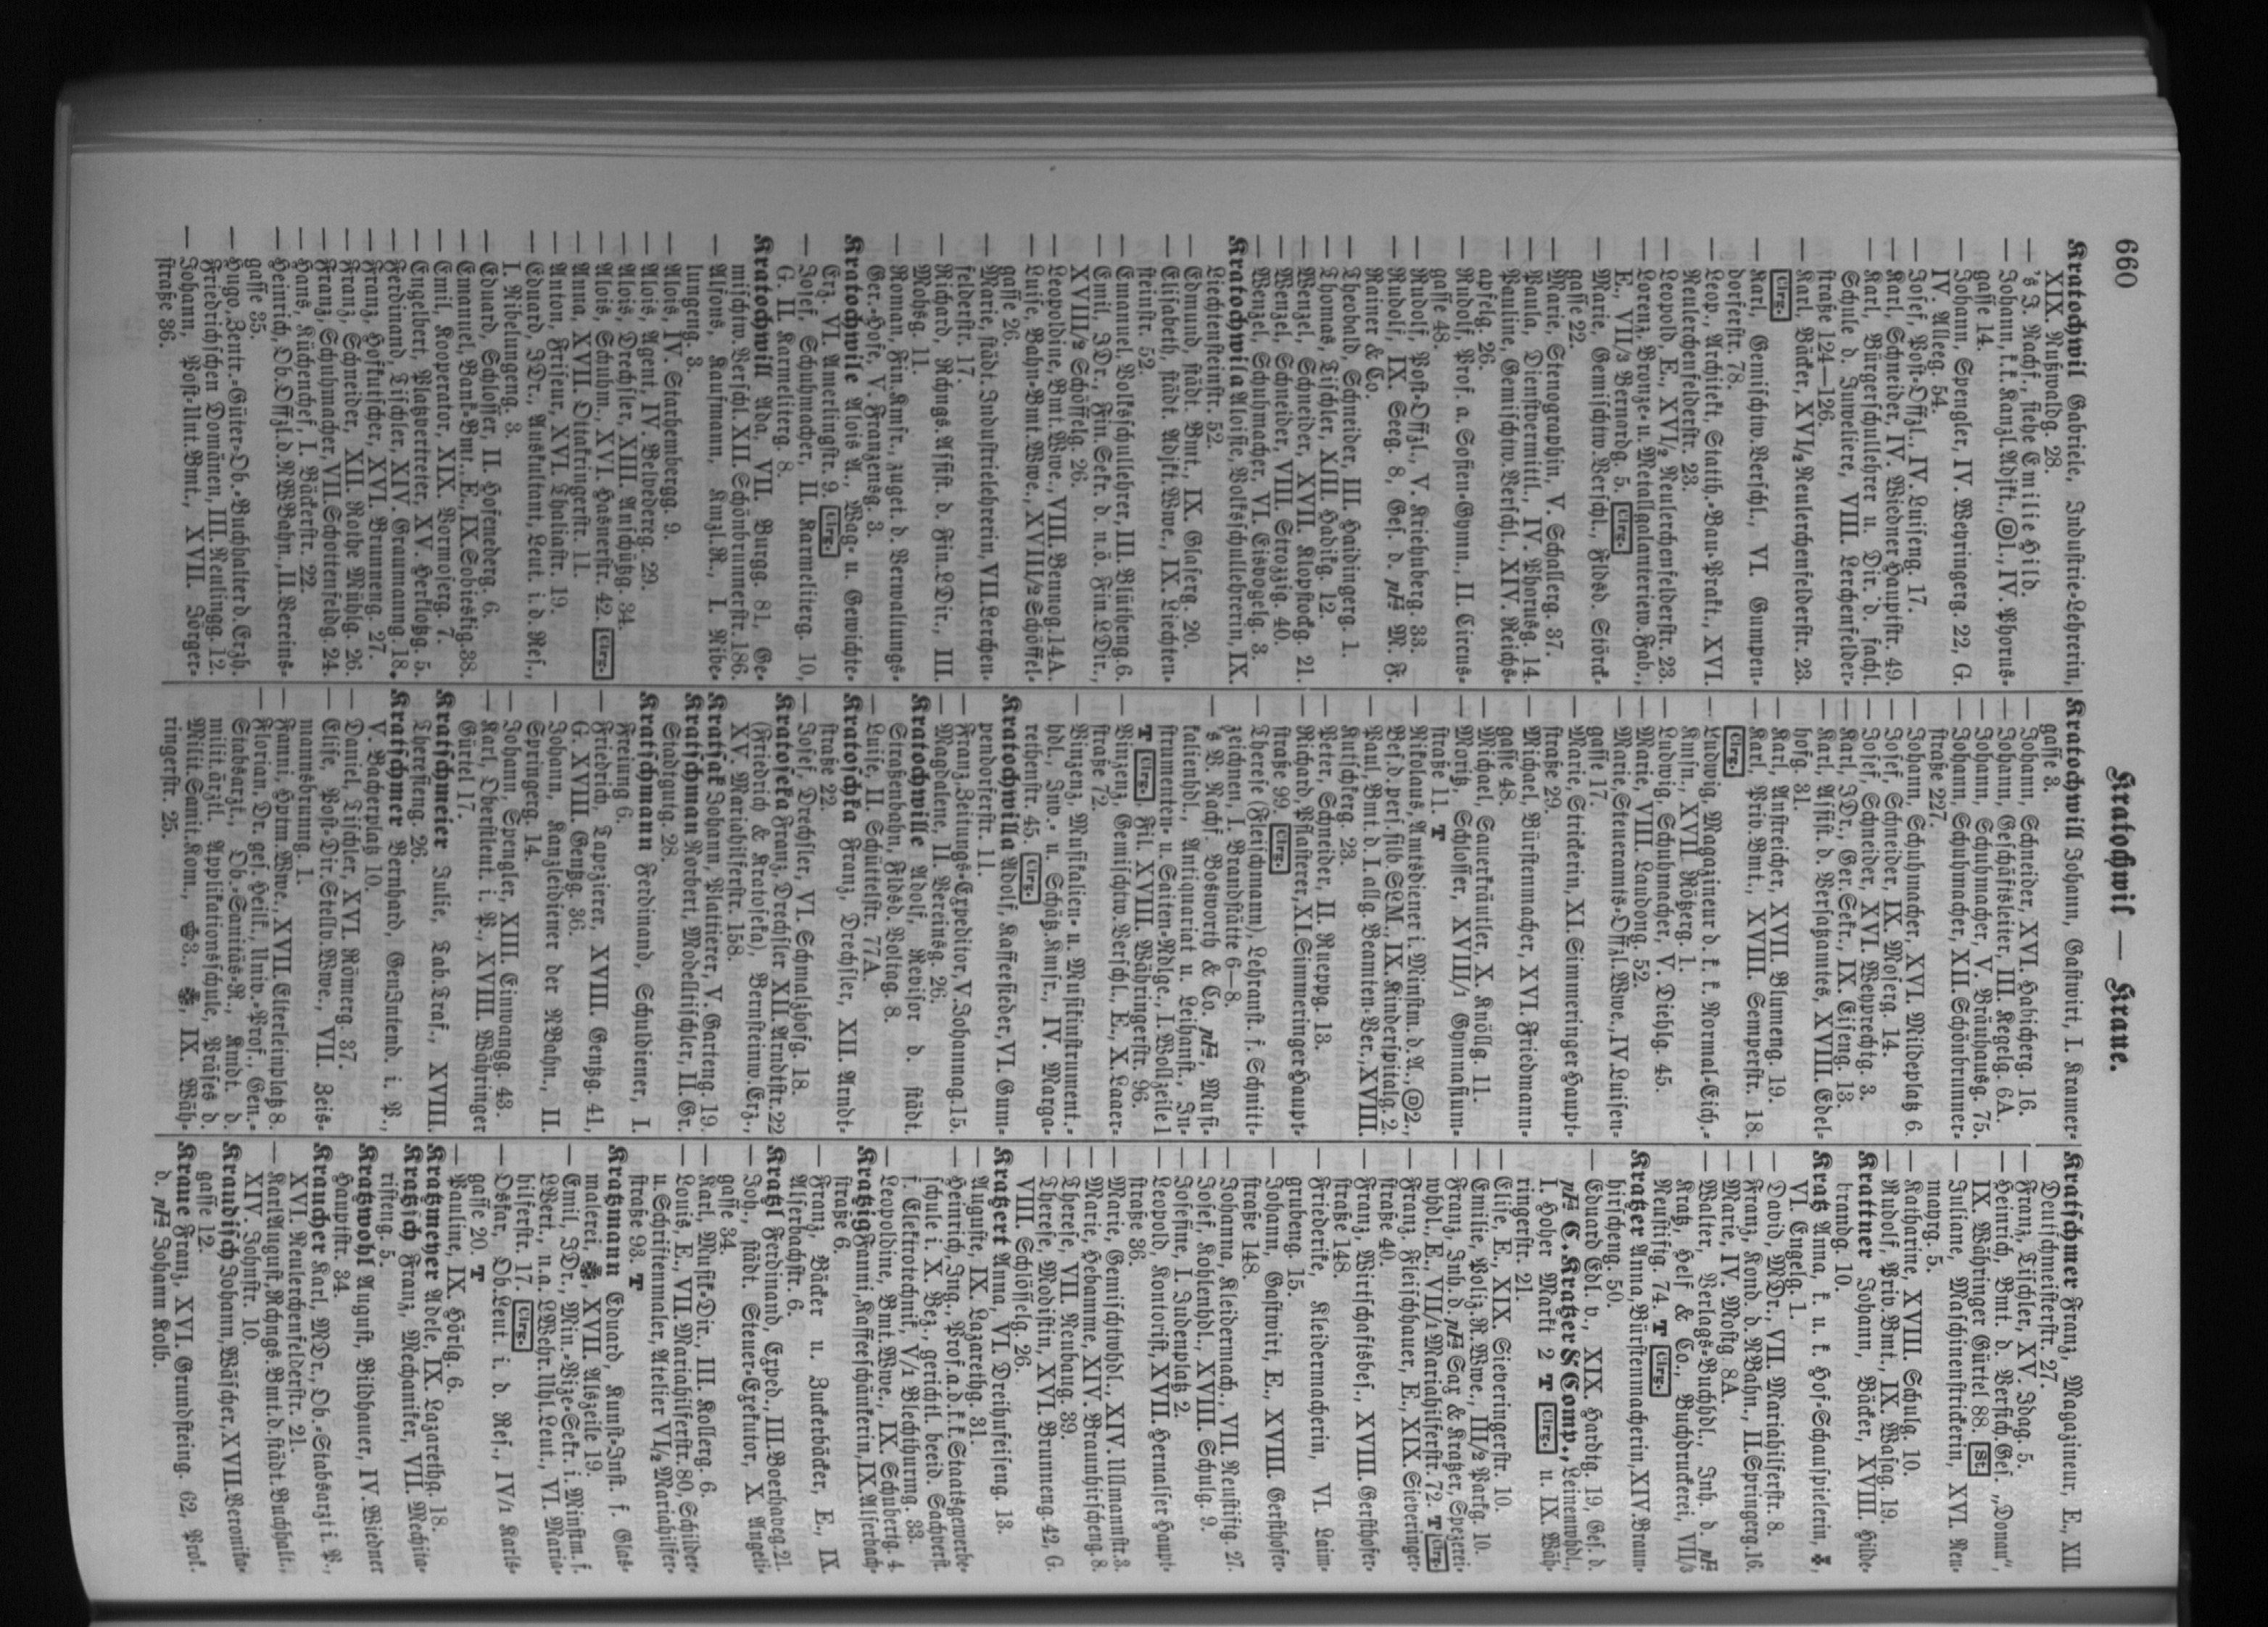 660
Kratochwil — Kraue.
Kratochwil Gabriele, Industrie-Lehrerin,
XIX. Nußwaldg. 28.
— 's J. Nachf., siehe Emilie Hild.
— Johann, k. k. Kanzl.Adjkt., Ⓓ1, IV. Phorus-
gasse 14.
— Johann, Spengler, IV. Weyringerg. 22, G.
IV. Alleeg. 54.
— Josef, Post-Offzl., IV. Luiseng. 17.
— Karl, Schneider, IV. Wiedner Hauptstr. 49.
— Karl, Bürgerschullehrer u. Dir. d. fachl.
Schule d. Juweliere, VIII. Lerchenfelder-
straße 124—126.
— Karl, Bäcker, XVI/2 Neulerchenfelderstr. 23.
Clrg.
— Karl, Gemischtw.Verschl., VI. Gumpen-
dorferstr. 78.
— Leop., Architekt, Statth.-Bau-Prakt., XVI.
Neulerchenfelderstr. 23.
— Leopold, E., XVI/2 Neulerchenfelderstr. 23.
— Lorenz, Bronze- u. Metallgalanteriew.Fab.,
E., VII/3 Bernardg. 5. Clrg.
— Marie, Gemischtw.Verschl., Fldsd. Störck-
gasse 22.
— Marie, Stenographin, V. Schallerg. 37.
— Paula, Dienstvermittl., IV. Phorusg. 14.
— Pauline, Gemischtw.Verschl., XIV. Reichs-
apfelg. 26.
— Rudolf, Prof. a. Sofien-Gymn., II. Circus-
gasse 48.
— Rudolf, Post-Offzl., V. Kriehuberg. 33.
— Rudolf, IX. Seeg. 8, Ges. d. M. F.
Rainer & Co.
— Theobald, Schneider, III. Haidingerg. 1.
— Thomas, Tischler, XIII. Hadikg. 12.
— Wenzel, Schneider, XVII. Klopstockg. 21.
— Wenzel, Schneider, VIII. Strozzig. 40.
— Wenzel, Schuhmacher, VI. Eisvogelg. 3.
Kratochwila Aloisie, Volksschullehrerin, IX.
Liechtensteinstr. 52.
— Edmund, städt. Bmt., IX. Glaserg. 20.
— Elisabeth, städt. Adjkt.Wwe., IX. Liechten-
steinstr. 52.
— Emanuel, Volksschullehrer, III. Blütheng. 6
— Emil, JDr., Fin.Sekr. d. n.ö. Fin.LDir.,
XVIII/2 Schöffelg. 26.
— Leopoldine, Bmt.Wwe., VIII. Bennog. 14A.
— Luise, Bahn-Bmt.Wwe., XVIII/2 Schöffel-
gasse 26.
— Marie, städt. Industrielehrerin, VII. Lerchen-
felderstr. 17.
— Richard, Rchngs.Assist. d. Fin.LDir., III.
Mohsg. 11.
— Roman, Fin.Kmsr., zuget. d. Verwaltungs-
Ger.-Hofe, V. Franzensg. 3.
Kratochwile Alois A., Wag- u. Gewichte-
Erz., VI. Amerlingstr. 9. Clrg.
— Josef, Schuhmacher, II. Karmeliterg. 10,
G. II. Karmeliterg. 8.
Kratochwill Ada, VII. Burgg. 81, Ge-
mischtw.Verschl. XII. Schönbrunnerstr. 186.
— Alfons, Kaufmann, Kmzl.R., I. Nibe-
lungeng. 3.
— Alois, IV. Starhembergg. 9.
— Alois, Agent, IV. Belvedereg. 29.
— Alois, Drechsler, XIII. Anschützg. 34.
— Alois, Schuhm., XVI. Hasnerstr. 42. Clrg.
— Anna, XVII. Ottakringerstr. 11.
— Anton, Friseur, XVI. Thaliastr. 19.
— Eduard, JDr., Auskultant, Leut. i. d. Res.,
I. Nibelungeng. 3.
— Eduard, Schlosser, II. Hofenederg. 6.
— Emanuel, Bank-Bmt., E., IX. Sobieskig. 38.
— Emil, Kooperator, XIX. Vormoserg. 7.
— Engelbert, Platzvertreter, XV. Herklotzg. 5.
— Ferdinand, Tischler, XIV. Graumanng. 18.
— Franz, Hofkutscher, XVI. Brunneng. 27.
— Franz, Schneider, XII. Rothe Mühlg. 26.
— Franz, Schuhmacher, VII. Schottenfeldg. 24.
— Hans, Küchenchef, I. Bäckerstr. 22.
— Heinrich, Ob.Offzl. d. NWBahn, II. Vereins-
gasse 35.
— Hugo, Zentr.-Güter-Ob.-Buchhalter d. Erzh.
Friedrich'schen Domänen, III. Neulingg. 12.
— Johann, Post-Unt.Bmt., XVII. Jörger-
straße 36.
Kratochwill Johann, Gastwirt, I. Kramer-
gasse 3.
— Johann, Schneider, XVI. Habicherg. 16.
— Johann, Geschäftsleiter, III. Kegelg. 6A.
— Johann, Schuhmacher, V. Bräuhausg. 75.
— Johann, Schuhmacher, XII. Schönbrunner-
straße 227.
— Johann, Schuhmacher, XVI. Mildeplatz 6
— Josef, Schneider, IX. Moserg. 14.
— Josef, Schneider, XVI. Weyprechtg. 3.
— Karl, JDr., Ger.Sekr., IX. Eiseng. 13.
— Karl, Assist. d. Versatzamtes, XVIII. Edel-
hofg. 31.
— Karl, Anstreicher, XVII. Blumeng. 19.
— Karl, Priv.Bmt., XVIII. Semperstr. 18.
Clrg.
— Ludwig, Magazineur d. k. k. Normal-Eich.-
Kmsn., XVII. Rötzerg. 1.
— Ludwig, Schuhmacher, V. Diehlg. 45.
— Marie, VIII. Laudong. 52.
— Marie, Steueramts-Offzl.Wwe., IV. Luisen-
gasse 17.
— Marie, Strickerin, XI. Simmeringer Haupt-
straße 29.
— Michael, Bürstenmacher, XVI. Friedmann-
gasse 48.
— Michael, Sauerkräutler, X. Knöllg. 11.
— Moriz, Schlosser, XVIII/1 Gymnasium-
straße 11. T
— Nikolaus, Amtsdiener i. Minstm. d. A., Ⓓ2.,
Bes. d. pers. silb. SLM., IX. Kinderspitalg. 2.
— Paul, Bmt. d. I. allg. Beamten-Ver., XVIII.
Kutschkerg. 23.
— Peter, Schneider, II. Rueppg. 13.
— Richard, Pflasterer, XI. Simmeringer Haupt-
straße 99. Clrg.
— Therese (Fleischmann), Lehranst. f. Schnitt-
zeichnen, I. Brandstätte 6—8.
— 's V. Nachf. Bosworth & Co., Musi-
kalienhdl., Antiquariat u. Leihanst., In-
strumenten- u. Saiten-Ndlge., I. Wollzeile 1
T Clrg. Fil. XVIII. Währingerstr. 96.
— Vinzenz, Gemischtw.Verschl., E., X. Laaer-
straße 72.
— Vinzenz, Musikalien- u. Musikinstrument.-
hdl., Inv.- u. Schätz.Kmsr., IV. Marga-
rethenstr. 45. Clrg.
Kratochwilla Adolf, Kaffeesieder, VI. Gum-
pendorferstr. 11.
— Franz, Zeitungs-Expeditor, V. Johannag. 15.
— Magdalene, II. Vereinsg. 26.
Kratochwille Adolf, Revisor d. städt.
Straßenbahn, Fldsd. Voltag. 8.
— Luise, II. Schüttelstr. 77A.
Kratoschka Franz, Drechsler, XII. Arndt-
straße 22.
— Josef, Drechsler, VI. Schmalzhofg. 18.
Kratoska Franz, Drechsler XII. Arndtstr. 22
(Friedrich & Kratoska), Bernsteinw.Erz.,
XV. Mariahilferstr. 158.
Kratsak Johann, Plattierer, V. Garteng. 19.
Kratschman Norbert, Modelltischler, II. Gr.
Stadtgutg. 28.
Kratschmann Ferdinand, Schuldiener, I.
Freiung 6.
— Friedrich, Tapezierer, XVIII. Gentzg. 41,
G. XVIII. Gentzg. 36.
— Johann, Kanzleidiener der NBahn., II.
Springerg. 14.
— Johann, Spengler, XIII. Einwangg. 43.
— Karl, Oberstleut. i. P., XVIII. Währinger
Gürtel 17.
Kratschmeier Julie, Tab.Traf., XVIII.
Theresieng. 26.
Kratschmer Bernhard, GenIntend. i. P.,
V. Bacherplatz 10.
— Daniel, Tischler, XVI. Römerg. 37.
— Elise, Post-Dir.Stellv.Wwe., VII. Zeis-
mannsbrunng. 1.
— Fanni, Hptm.Wwe., XVII. Elterleinplatz 8.
— Florian, Dr. ges. Heilk., Univ.-Prof., Gen.-
Stabsarzt., Ob.-Sanitäs-R., Kmdt. d.
milit.ärztl. Applikationsschule, Präses d.
Milit.Sanit.Kom., 3., IX. Wäh-
ringerstr. 25.
Kratschmer Franz, Magazineur, E., XII.
Deutschmeisterstr. 27.
— Franz, Tischler, XV. Zdag. 5.
— Heinrich, Bmt. d. Versich.Ges. „Donau“,
IX. Währinger Gürtel 88. St.
— Juliane, Maschinenstrickerin, XVI. Neu-
mayrg. 5.
— Katharine, XVIII. Schulg. 10.
— Rudolf, Priv.Bmt., IX. Wasag. 19.
Krattner Johann, Bäcker, XVIII. Hilde-
brandg. 10.
Kratz Anna, k. u. k. Hof-Schauspielerin,
VI. Engelg. 1.
— David, MDr., VII. Mariahilferstr. 8.
— Franz, Kond. d. NBahn., II. Springerg. 16
— Marie, IV. Mostg. 8A.
— Walter, Verlags-Buchhdl., Inh. d.
Kratz, Helf & Co., Buchdruckerei, VII/3
Neustiftg. 74. T Clrg.
Kratzer Anna, Bürstenmacherin, XIV. Braun-
hirscheng. 50.
— Eduard Edl. v., XIX. Hardtg. 19, Ges. d.
C. Kratzer & Comp., Leinenwhdl.,
I. Hoher Markt 2 T Clrg. u. IX. Wäh-
ringerstr. 21.
— Elise, E., XIX. Sieveringerstr. 10.
— Emilie, Poliz.R.Wwe., III/2 Parkg. 10.
— Franz, Inh. d. Sax & Kratzer, Spezerei-
whdl., E., VII/1 Mariahilferstr. 72. T Clrg.
— Franz, Fleischhauer, E., XIX. Sieveringer-
straße 40.
— Franz, Wirtschaftsbes., XVIII. Gersthofer-
straße 148.
— Friederike, Kleidermacherin, VI. Laim-
grubeng. 15.
— Johann, Gastwirt, E., XVIII. Gersthofer-
straße 148.
— Johanna, Kleidermach., VII. Neustiftg. 27.
— Josef, Kohlenhdl., XVIII. Schulg. 9.
— Josefine, I. Judenplatz 2.
— Leopold, Kontorist, XVII. Hernalser Haupt-
straße 36.
— Marie, Gemischtwhdl., XIV. Ullmannstr. 3.
— Marie, Hebamme, XIV. Braunhirscheng. 8.
— Therese, VII. Neubaug. 39.
— Therese, Modistin, XVI. Brunneng. 42, G.
VIII. Schlösselg. 26.
Kratzert Anna, VI. Dreihufeiseng. 13.
— Auguste, IX. Lazarethg. 31.
— Heinrich, Ing., Prof. a. d. k. k. Staatsgewerbe-
schule i. X. Bez., gerichtl. beeid. Sachverst.
f. Elektrotechnik, V/1 Blechthurmg. 33.
— Leopoldine, Bmt.Wwe., IX. Schuberg. 4.
Kratzig Fanni, Kaffeeschänkerin, IX. Alserbach-
straße 6.
— Franz, Bäcker u. Zuckerbäcker, E., IX.
Alserbachstr. 6.
Kratzl Ferdinand, Exped., III. Boerhaveg. 21.
— Joh., städt. Steuer-Exekutor, X. Angeli-
gasse 34.
— Karl, Musik-Dir., III. Kollerg. 6.
— Louis, E., VII. Mariahilferstr. 80, Schilder-
u. Schriftenmaler, Atelier VI/2 Mariahilfer-
straße 93. T
Kratzmann Eduard, Kunst-Inst. f. Glas-
malerei, XVII. Alszeile 19.
— Emil, JDr., Min.-Vize-Sekr. i. Minstm. f.
LVert., n.a. LWehr.Uhl.Leut., VI. Maria-
hilferstr. 17. Clrg.
— Oskar, Ob.Leut. i. d. Res., IV/1 Karls-
gasse 20. T
— Pauline, IX. Hörlg. 6.
Kratzmeyer Adele, IX. Lazarethg. 18.
Kratzsch Franz, Mechaniker, VII. Mechita-
risteng. 5.
Kratzwohl August, Bildhauer, IV. Wiedner
Hauptstr. 34.
Kraucher Karl, MDr., Ob.-Stabsarzt i. P.,
XVI. Neulerchenfelderstr. 21.
— Karl August, Rchngs.Bmt. d. städt. Buchhalt.,
XIV. Johnstr. 10.
Kraudisch Johann, Wäscher, XVII. Veronika-
gasse 12.
Kraue Franz, XVI. Grundsteing. 62, Prok.
d. Johann Kolb.